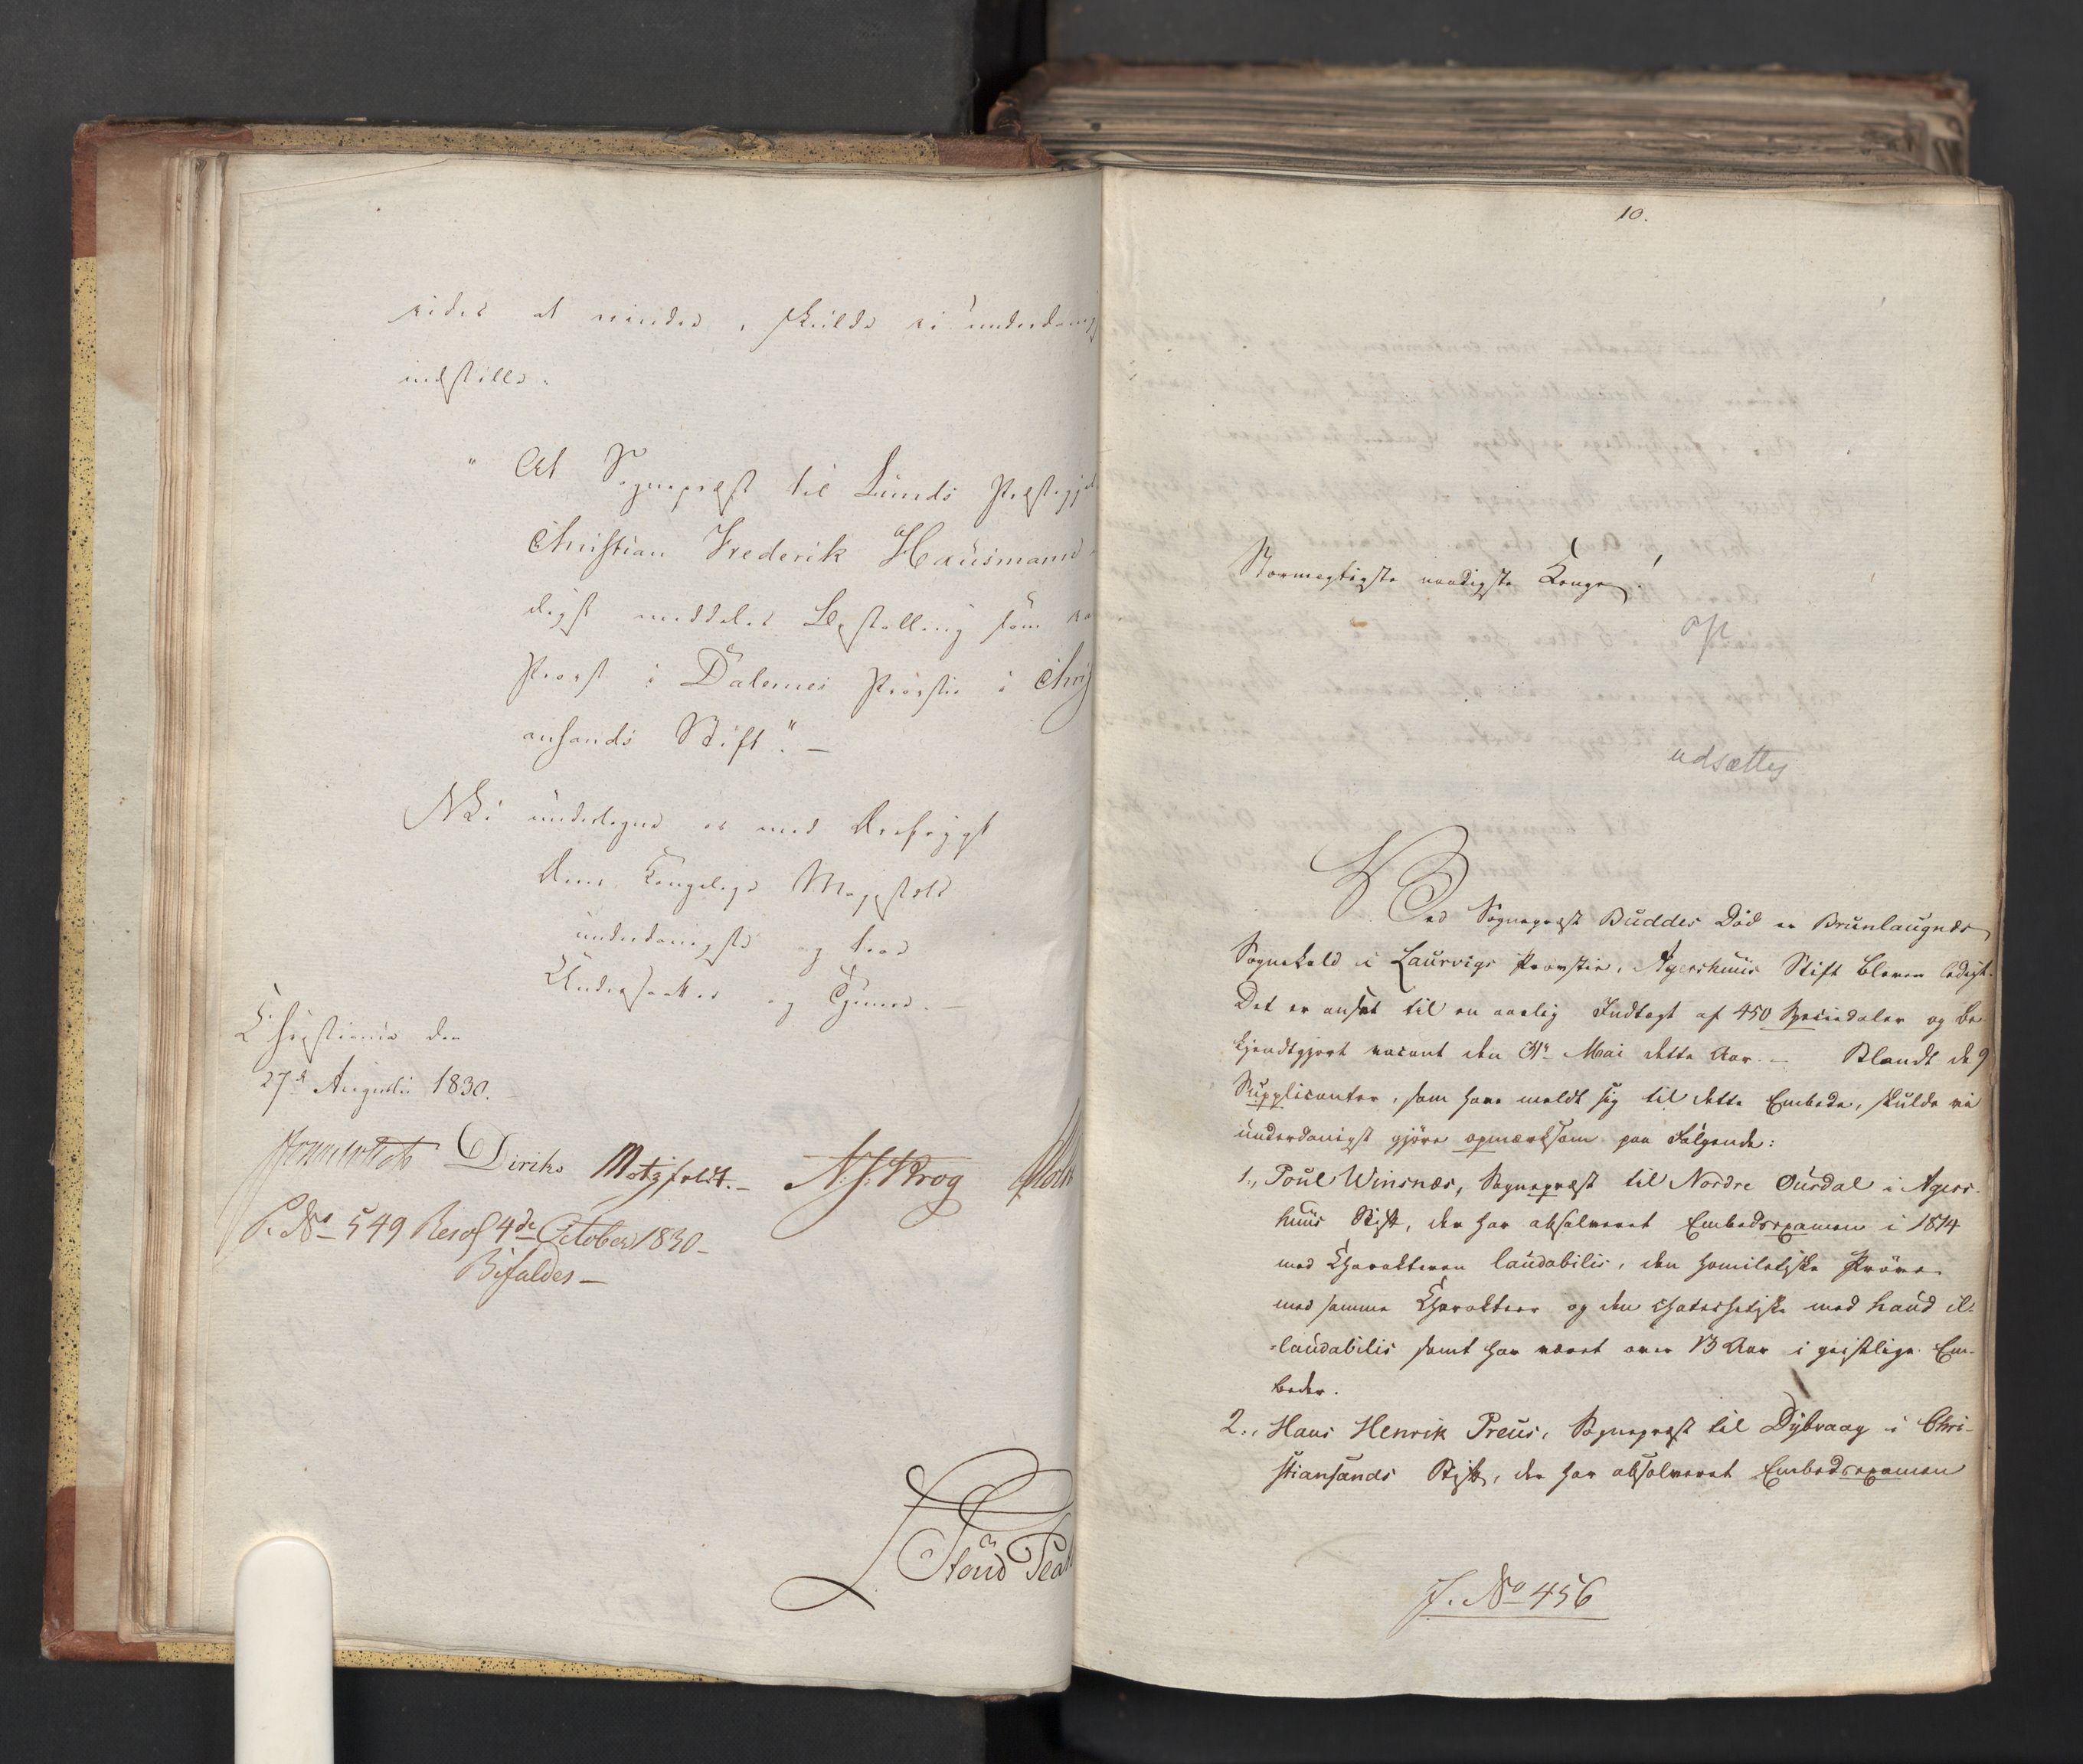 sides at erindre, skulde vi underdanig
indstille:
" At Sognepræst til Lunds Præstegjel
Christian Frederik Hausmann
digst meddeles Bestalling som
Provst i Dalernes Provstie i Chri
ansands Stift." —
Vi undertegne os med Ærefrygt
Deres Kongelige Majestæts
underdanigste og troe
Undersaatter og Tjenere. —
Christiania den
27de Augusti 1830.
Diriks Motzfeldt. — N. J. Krog
S. No 549 Resol 4de October 1830 —
Bifaldes —
10.
Stormægtigste naadigste Konge!
op
udsættes
Ved Sognepræst Buddes Død er Brunlaugnæs
Sognekald i Laurvigs Provstie, Agershuus Stift bleven ledigt.
Det er ansat til en aarlig Indtægt af 450 Speciedaler og be-
kjendtgjort vacant den 31te Mai dette Aar. — Blandt de 9
Supplicanter, som have meldt sig til dette Embede, skulde vi
underdanigst gjøre opmærksom paa Følgende:
1., Poul Winsnæs, Sognepræst til Nordre Ourdal i Agers-
huus Stift, der har absolveret Embedsexamen i 1814
med Charakteren laudabilis, den homiletiske Prøve
med samme Charakteer og den chatechetiske med haud il-
laudabilis samt har været over 13 Aar i geistlige Em-
beder.
2., Hans Henrik Preus, Sognepræst til Dybvaag i Chri-
stiansands Stift, der har absolveret Embedsexamen
J. No 456